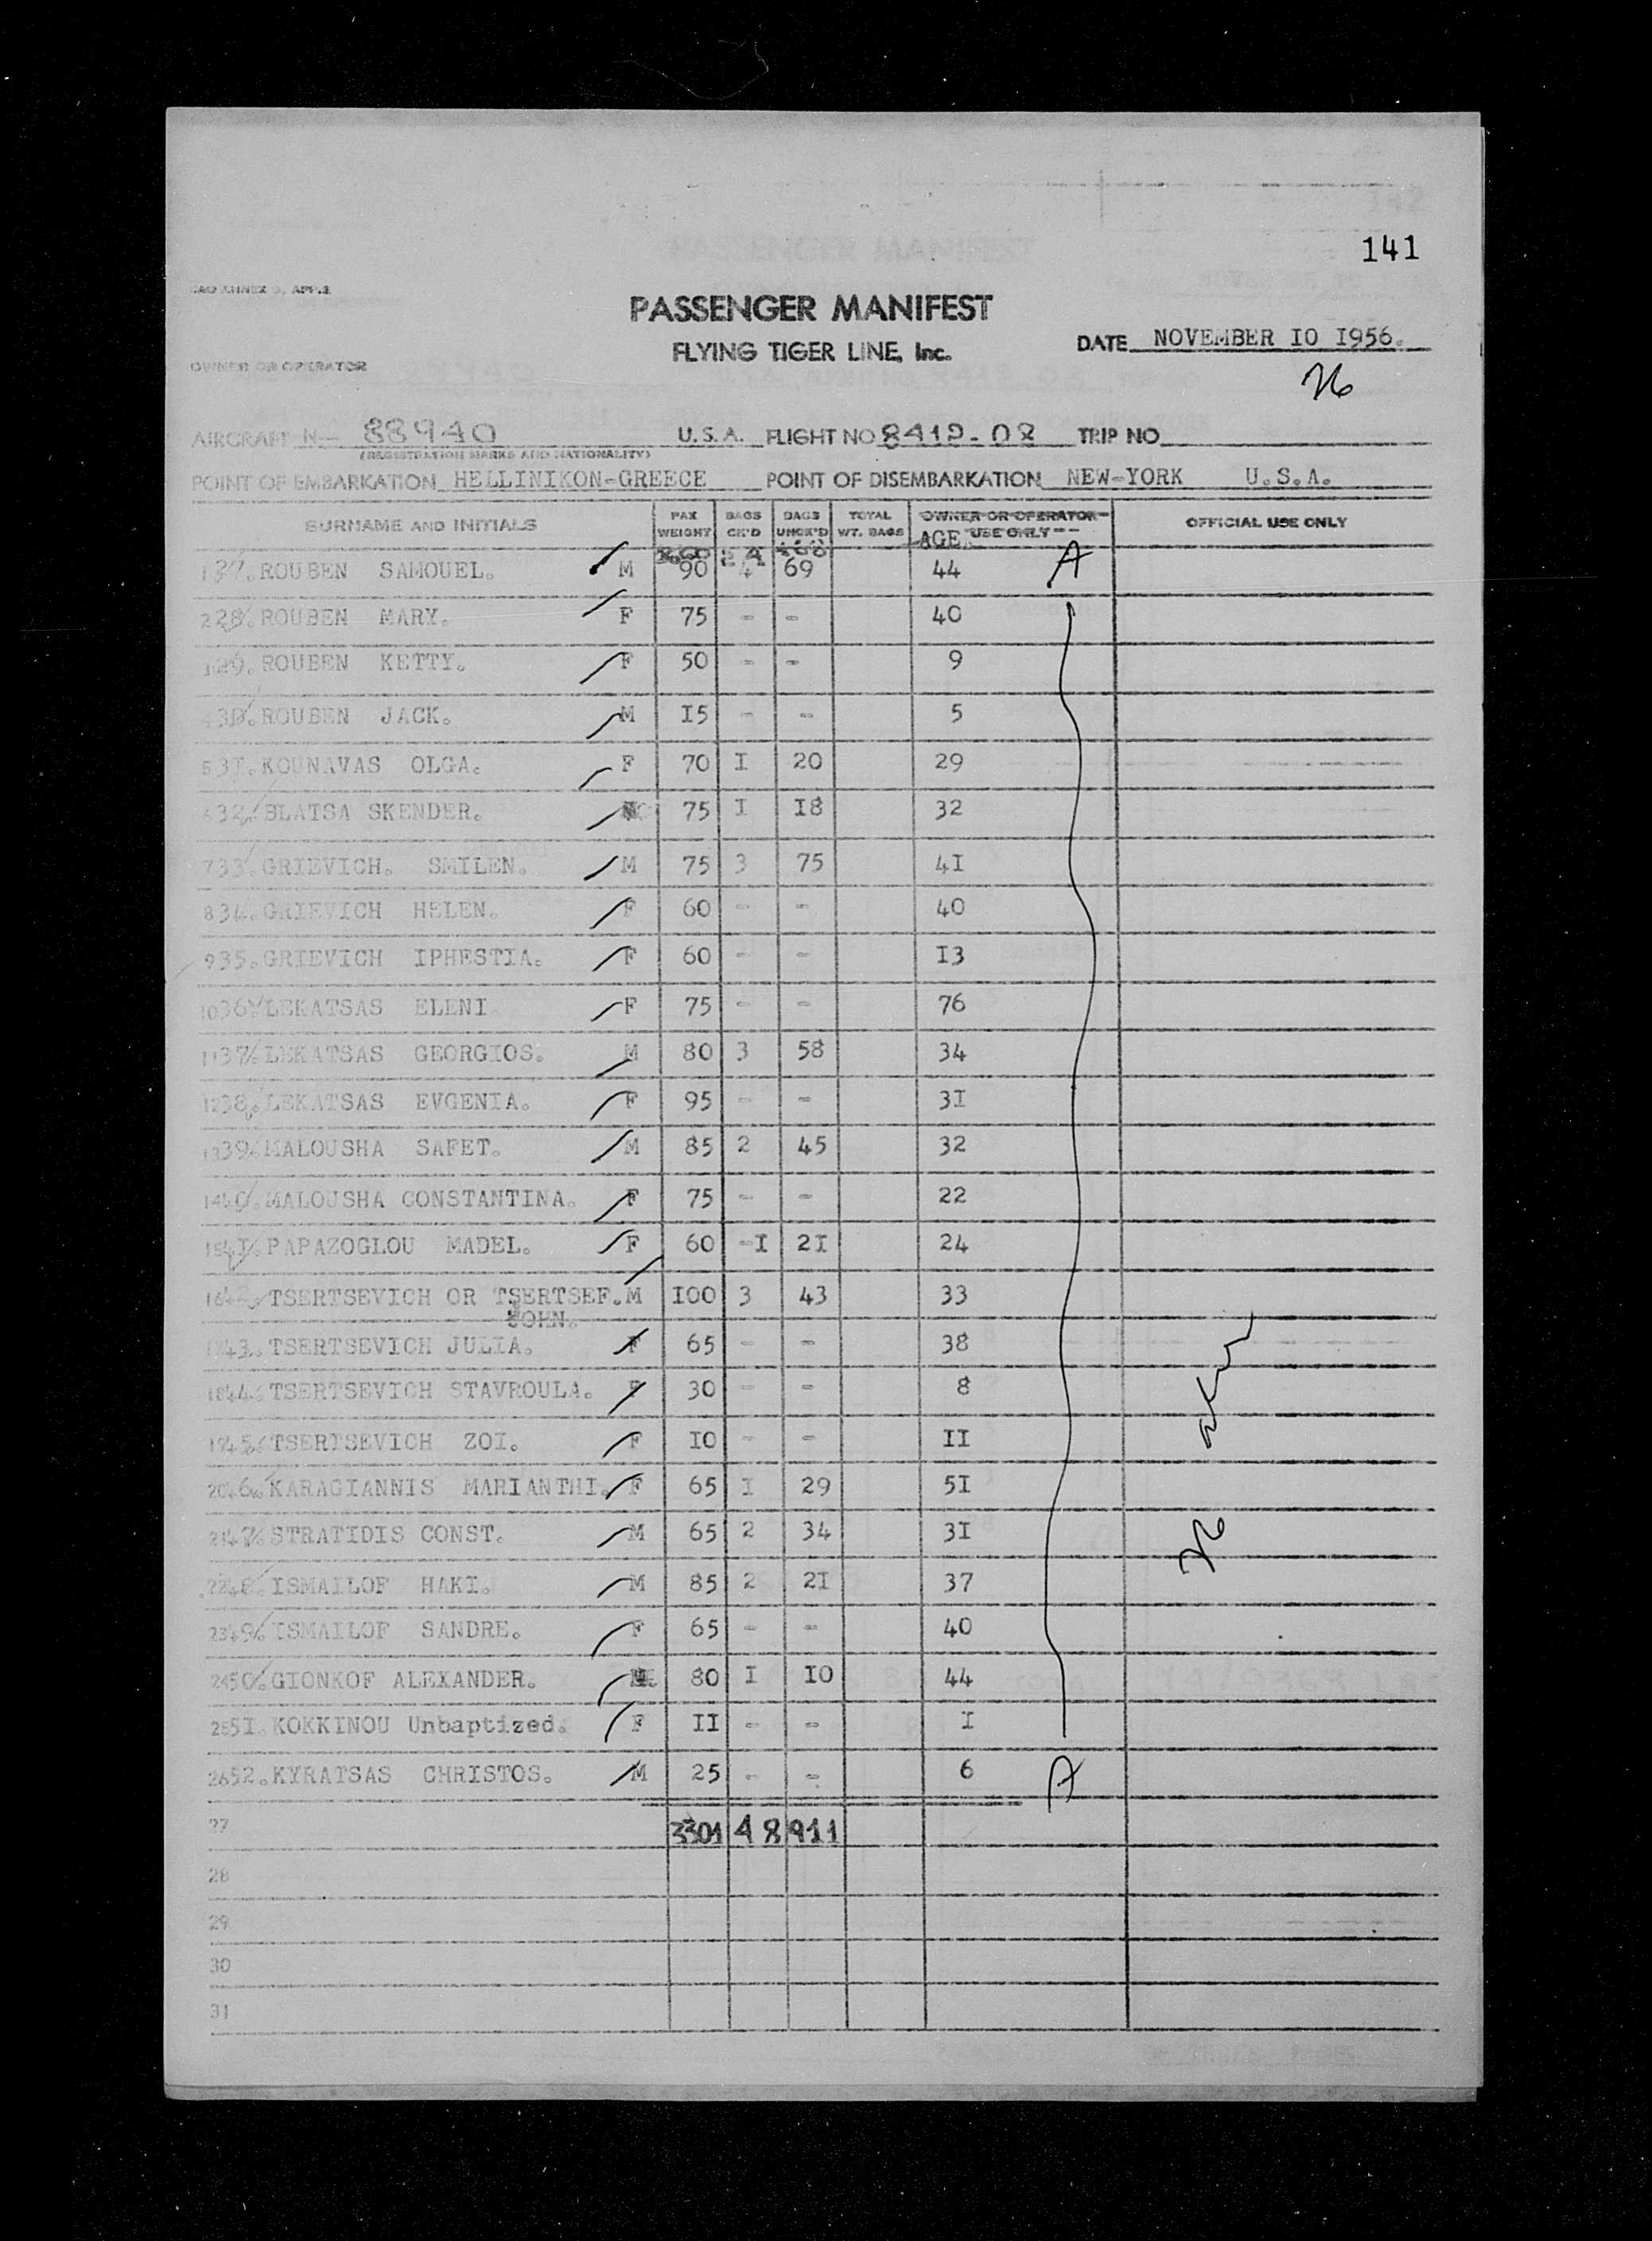 141
PASSENGER MANIFEST
FLYING TIGER LINE, Inc.
DATE NOVEMBER IO I956.
26
OWNER OR OPERATOR
AIRCRAFT N— 88940 U.S.A. FLIGHT NO 8412-08 TRIP NO
(REGISTRATION MARKS AND NATIONALITY)
POINT OF EMBARKATION HELLINIKON-GREECE POINT OF DISEMBARKATION NEW-YORK U.S.A.
SURNAME AND INITIALS PAX WEIGHT BAGS CK'D BAGS UNCK'D TOTAL WT. BAGS OWNER OR OPERATOR USE ONLY AGE OFFICIAL USE ONLY
ROUBEN SAMOUEL. M 90 4 69 44 A
228. ROUBEN MARY. F 75 - - 40
329. ROUBEN KETTY. F 50 - - 9
430. ROUBEN JACK. M I5 - - 5
53I. KOUNAVAS OLGA. F 70 I 20 29
632. BLATSA SKENDER. 75 I I8 32
733. GRIEVICH. SMILEN. M 75 3 75 4I
834. GRIEVICH HELEN. F 60 - - 40
935. GRIEVICH IPHESTIA. F 60 - - I3
1036. LEKATSAS ELENI F 75 - - 76
1137. LEKATSAS GEORGIOS. M 80 3 58 34
1238. LEKATSAS EVGENIA. F 95 - - 3I
1339. MALOUSHA SAFET. M 85 2 45 32
1440. MALOUSHA CONSTANTINA. F 75 - - 22
154I. PAPAZOGLOU MADEL. F 60 -I 2I 24
1642. TSERTSEVICH OR TSERTSEF. M I00 3 43 33
JOHN.
1743. TSERTSEVICH JULIA. F 65 - - 38
1844. TSERTSEVICH STAVROULA. F 30 - - 8
1945. TSERTSEVICH ZOI. F IO - - II
2046. KARAGIANNIS MARIANTHI. F 65 I 29 5I
2147. STRATIDIS CONST. M 65 2 34 3I
2248. ISMAILOF HAKI. M 85 2 2I 37
2349. ISMAILOF SANDRE. F 65 - - 40
2450. GIONKOF ALEXANDER. 80 I IO 44
255I. KOKKINOU Unbaptized. F II - - I
2652. KYRATSAS CHRISTOS. M 25 - - 6 A
27 3301 48 911
28
29
30
31
26